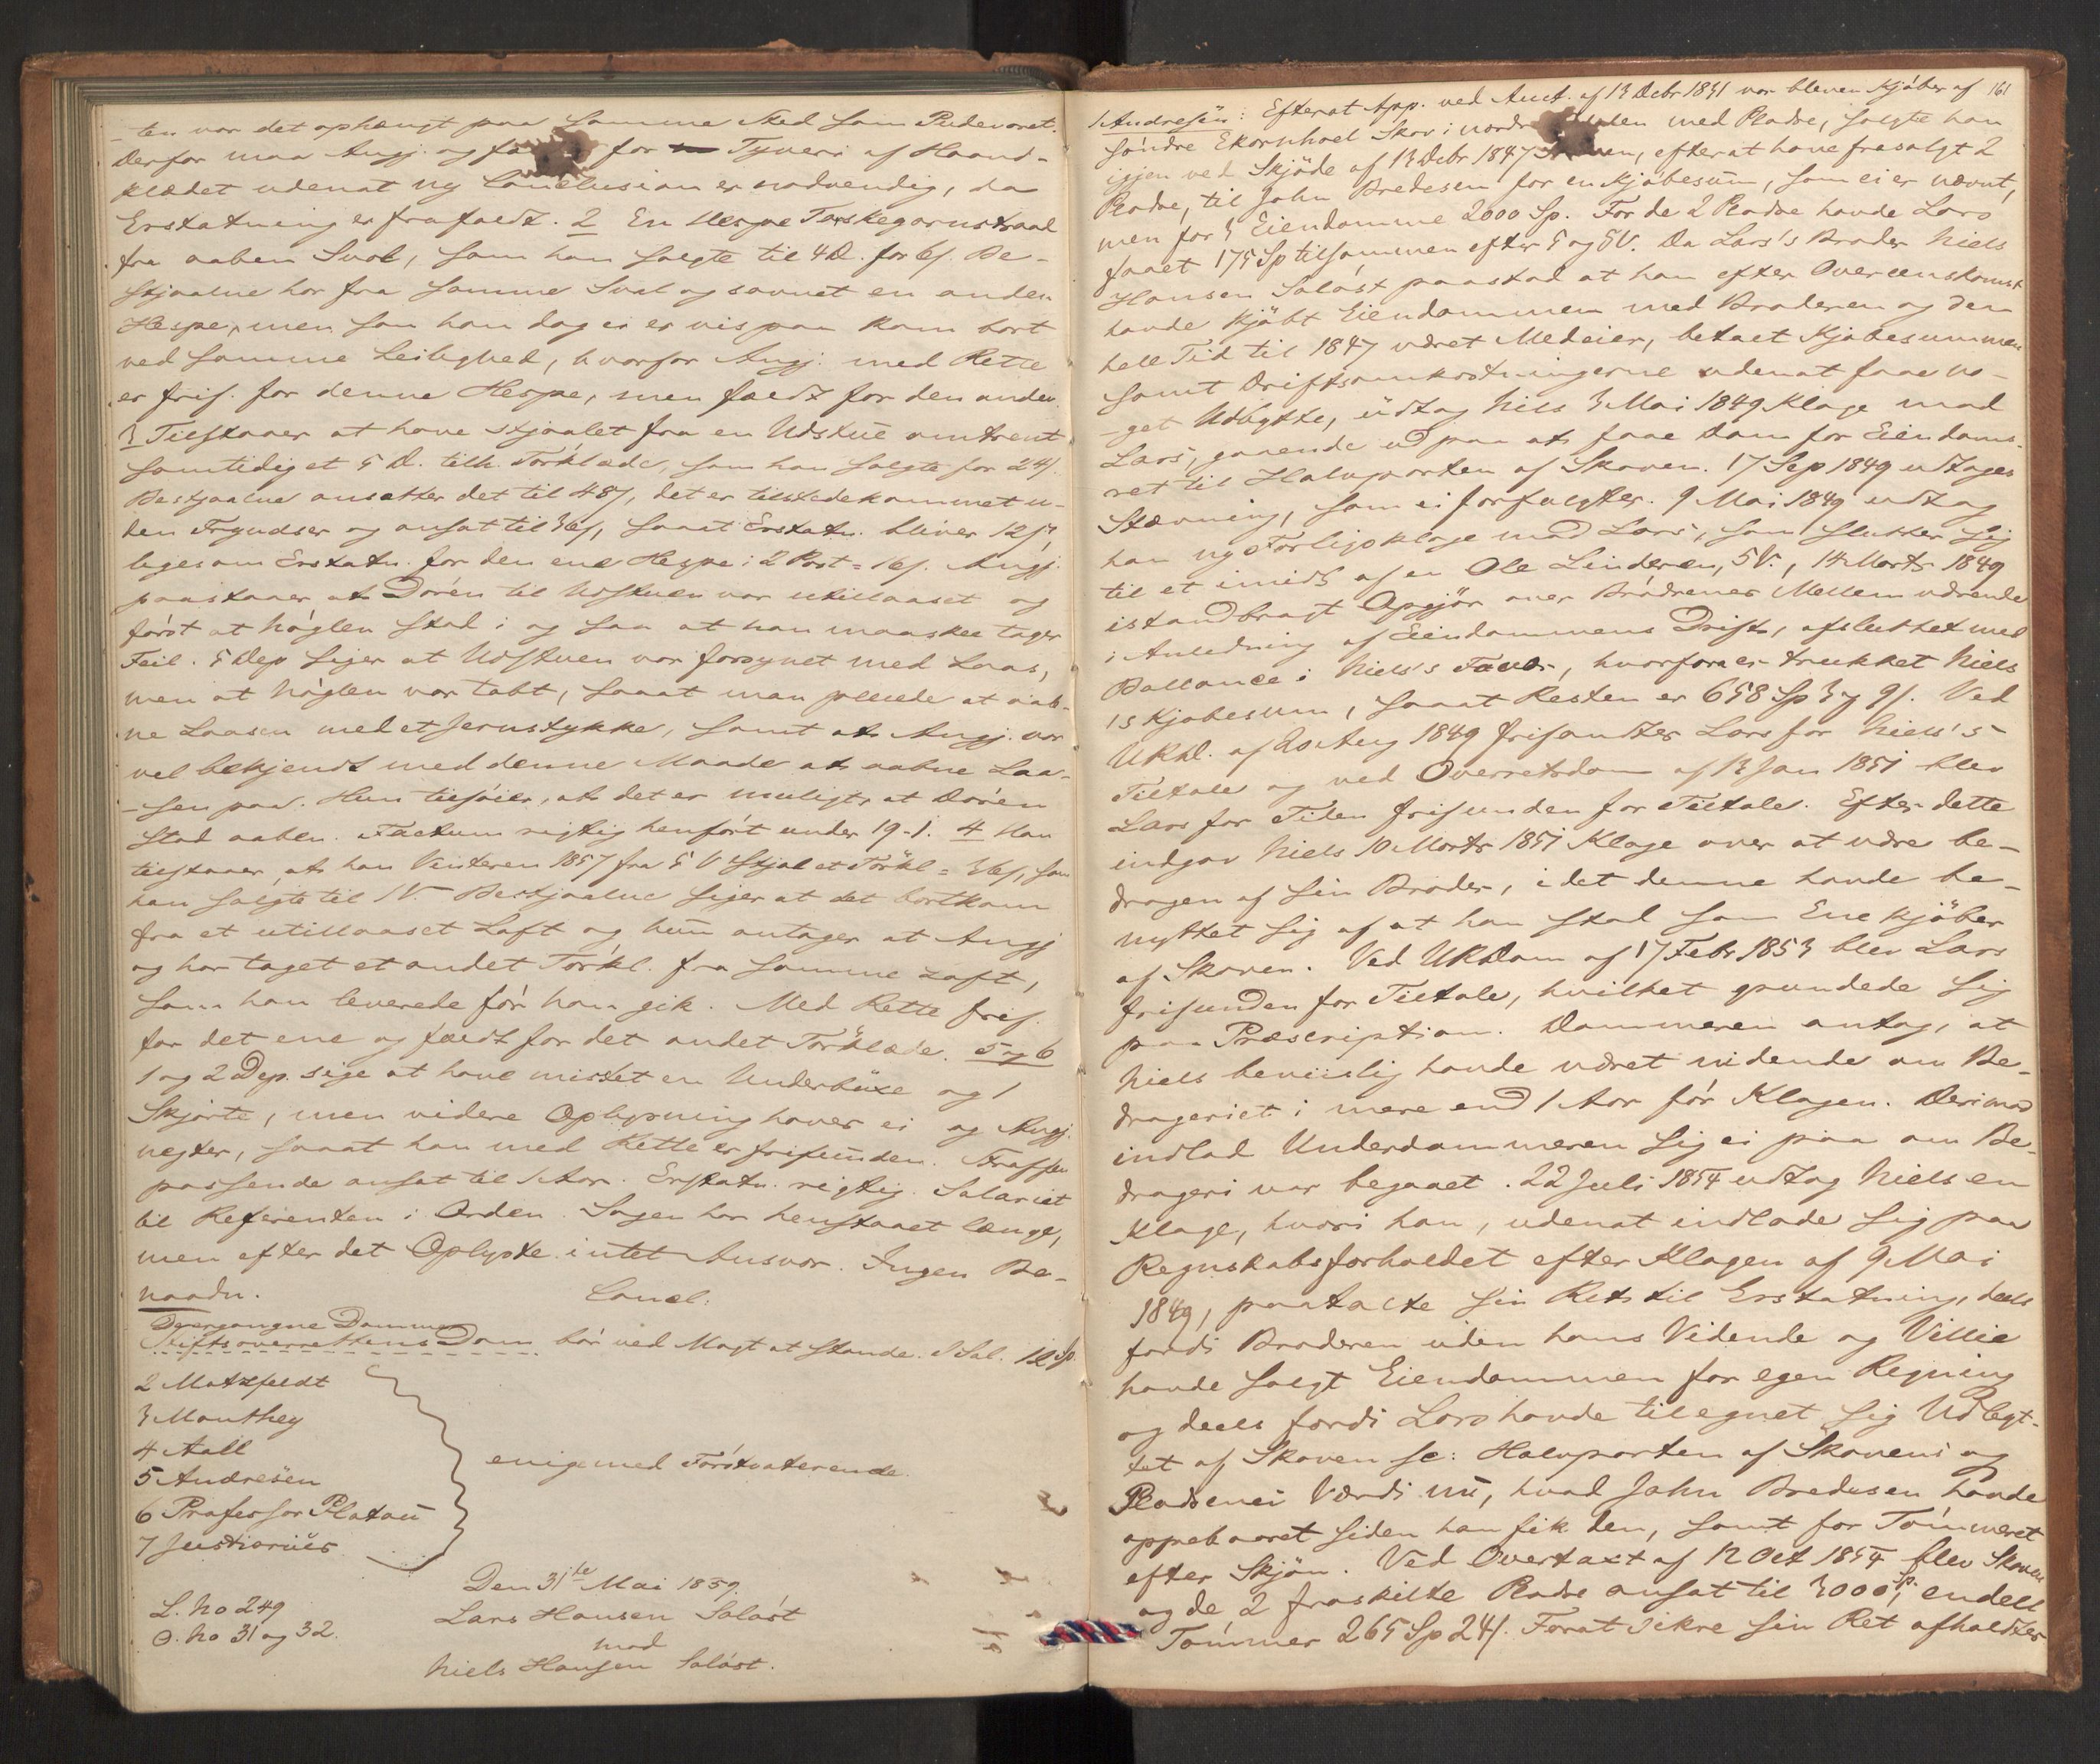 ten var det ophængt paa samme Sted som Pudevaret.
Derfor maa Angj. og for Tyveri af Haand-
klædet udenat ny Conclusion er nødvendig, da
Erstatning er frafaldt. 2 En Hespe Torskegarnstraad
fra aaben Sval, som han solgte til 4 D. for 6 s. Be-
stjaalne har fra samme Sval og savnet en anden
Hespe, men som han dog ei er vis paa kom bort
ved samme Leilighed, hvorfor Angj. med Rette
er frif. for denne Hespe, men fældt for den anden
3 Tilstaaer at have stjaalet fra en Udstue omtrent
samtidig et 5 D. tilh. Törklæde, som han solgte for 24 s.
Bestjaalne ansætter det til 48 s, det er tilstedekommet u-
den Fryndser og ansat til 36 s, saaat Erstatn. bliver 12 s,
ligesom Erstatn. for den ene Hespe i 2 Post = 16 s. Angj.
paastaaer at Dören til Udstuen var utillaaset og
först at Nöglen stod i og saa at han maaskee tager
Feil. 5 Dep siger at Udstuen var forsynet med Laas,
men at Nöglen var tabt, saaat man pleiede at aab-
ne Laasen med et Jernstykke, samt at Angj. var
vel bekjendt med denne Maade at aabne Laa-
sen paa. Hun tilföier, at det er muligt, at Dören
stod aaben. Factum rigtig henfört under 19-1. 4 Han
tilstaaer, at han Vinteren 1857 fra 5 V stjal et Törkl = 36 s, som
han solgte til 1 V. Bestjaalne siger at det bortkom
fra et utillaaset Loft og hun antager at Angj
og har taget et andet Törkl. fra samme Loft,
som han leverede för han gik. Med Rette frif.
for det ene og fældt for det andet Törklæde. 5 og 6
1 og 2 Dep. sige at have mistet en Underbuxe og 1
Skjorte, men videre Oplysning haves ei og Angj.
negter, saaat han med Rette er frifunden. Straffen
passende ansat til 1 Aar. Erstatn. rigtig. Salariet
til Referenten i Orden. Sagen har henstaaet længe,
men efter det Oplyste intet Ansvar. Ingen Be-
naadn. Concl:
Overgangne Domme
Stiftsoverrettens Dom bör ved Magt at stande. S Sal. 12 Sp.
2 Motzfeldt
3 Manthey
4 Aall
5 Andresen
6 Professor Platou
7 Justiarius
enige med Förstvoterende.
Den 31te Mai 1859.
L. No 249
O. No 31 og 32.
Lars Hansen Saløst
mod
Niels Hansen Saløst.
161
1 Andresen: Efterat App. ved Auct. af 13 Debr 1841 var bleven Kjöber af
söndre Ekornhoel Skov i nordre med Pladse, solgte han
igjen ved Skjöde af 13 Debr 1847 efter at have frasolgt 2
Pladse, til John Bredesen for en Kjöbesum, som ei er nævnt,
men for 3 Eiendomme 2000 Sp. For de 2 Pladse havde Lars
faaet 175 Sp tilsammen efter 5 og 6 V. Da Lars's Broder Niels
Hansen Saløst paastod at han efter Overeenskomst
havde kjöbt Eiendommen med Broderen og den
hele Tid til 1847 været Medeier, betalt Kjöbesummen
samt Driftsomkostningerne udenat faae no-
get Udbytte, udtog Niels 3 Mai 1849 Klage mod
Lars, gaaende ud paa at faae Dom for Eiendoms-
ret til Halvparten af Skoven. 17 Sep 1849 udtages
Stævning, som ei forfulgtes. 9 Mai 1849 udtog
han ny Forligsklage mod Lars, som slutter sig
til et imidl. af en Ole Linderen, 5 V., 14 Marts 1849
istandbragt Opgjör over Brödrenes Mellemværende
i Anledning af Eiendommens Drift, afsluttet med
Ballance i Niels's Faveur, hvorfra er trukket Niels
's Kjöbesum, saaat Resten er 658 Sp 3 ₰ 9 s. Ved
UKD. af 20 Aug 1849 frifandtes Lars for Niels's
Tiltale og ved Overretsdom af 13 Jan 1851 blev
Lars for Tiden frifunden for Tiltale. Efter dette
indgav Niels 10 Marts 1851 Klage over at være be-
dragen af sin Broder, idet denne havde be-
nyttet sig af at han stod som Enekjöber
af Skoven. Ved UKDom af 17 Febr 1853 blev Lars
frifunden for Tiltale, hvilket grundede sig
paa Præscription. Dommeren antog, at
Niels beviislig havde været vidende om Be-
drageriet i mere end 1 Aar för Klagen. Derimod
indlod Underdommeren sig ei paa om Be-
drageri var begaaet. 22 Juli 1854 udtog Niels en
Klage, hvori han, udenat indlade sig paa
Regnskabsforholdet efter Klagen af 9 Mai
1849, paatalte sin Ret til Erstatning, deels
fordi Broderen uden hans Vidende og Villie
havde solgt Eiendommen for egen Regning
og deels fordi Lars havde tilegnet sig Udbyt-
tet af Skoven sc: Halvparten af Skovens og
Pladsenes Værdi nu, hvad John Bredesen havde
oppebaaret siden han fik den, samt for Tömmeret
efter Skjön. Ved Overtaxt af 12 Oct 1854 blev Skoven
og de 2 fraskilte Pladse ansat til 3000 Sp., endell
Tömmer 265 Sp 24 s. Forat sikre sin Ret afholdtes